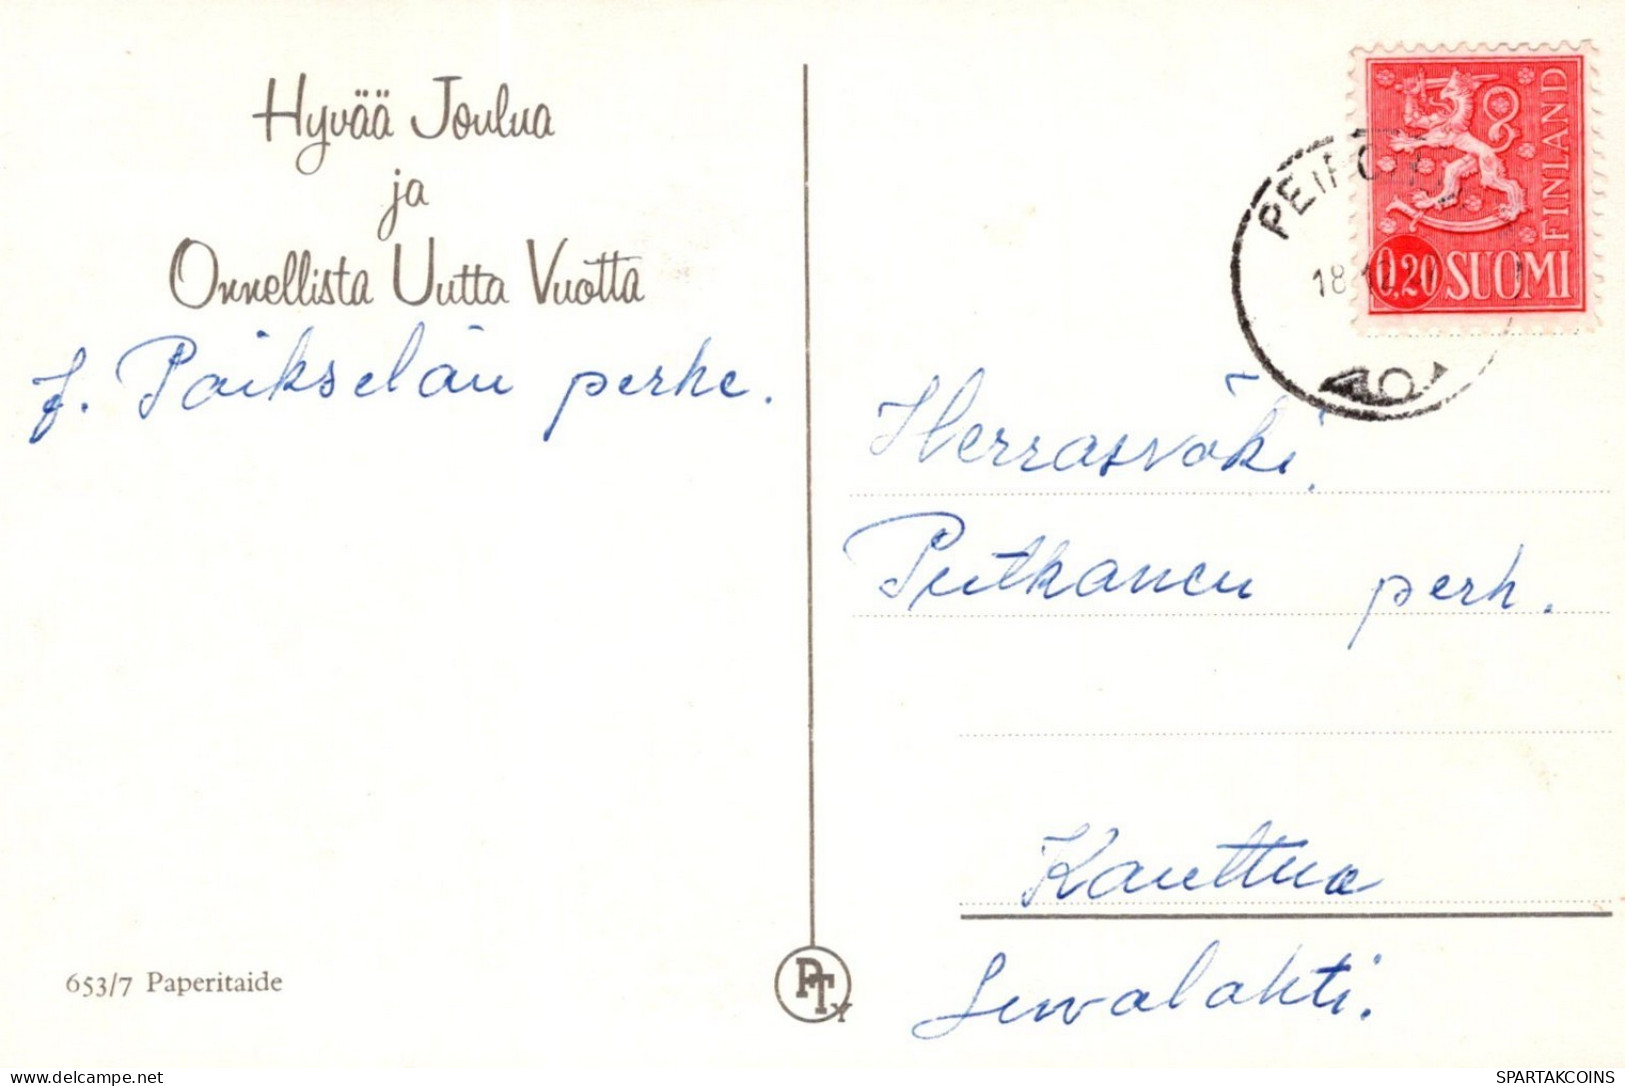 Hyvää Joulua
ja
Onnellista Uutta Vuotta
J. Paikselän perhe.
653/7 Paperitaide
PTY
FINLAND
0,20 SUOMI
18.12
Herrasväki
Putkanen perh.
Kauttua
SPARTAKCOINS